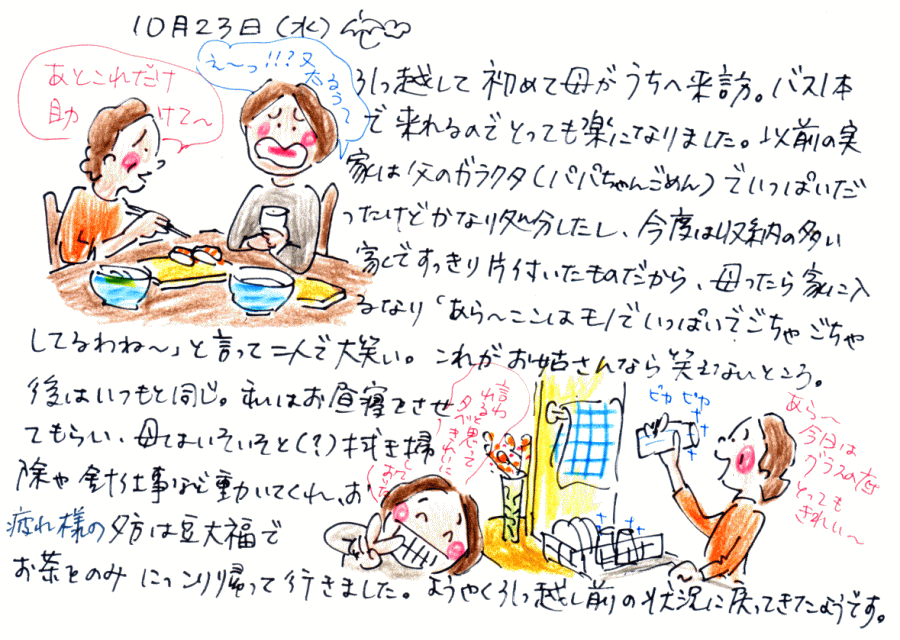 10月23日(水)
あとこれだけ
助けて〜
え〜っ!!?又
太るって
引っ越して初めて母がうちへ来訪。バス1本
で来れるのでとっても楽になりました。以前の実
家は父のガラクタ(パパちゃんごめん)でいっぱいだ
ったけどかなり処分したし、今度は収納の多い
家ですっきり片付いたものだから、母ったら家に入
るなり「あら〜ここはモノでいっぱいでごちゃごちゃ
してるわね〜」と言って二人で大笑い。これがお姑さんなら笑えないところ。
後はいつもと同じ。私はお昼寝をさせ
てもらい、母はいそいそと(?)拭き掃
除や針仕事など動いてくれ、お
疲れ様の夕方は豆大福で
お茶をのみにっこり帰って行きました。ようやく引っ越し前の状況に戻ってきたようです。
言わ
れると思って
夕べきれいに
しておいた
ピカ ピカ
あら〜
今日は
グラスの底
とっても
きれい〜